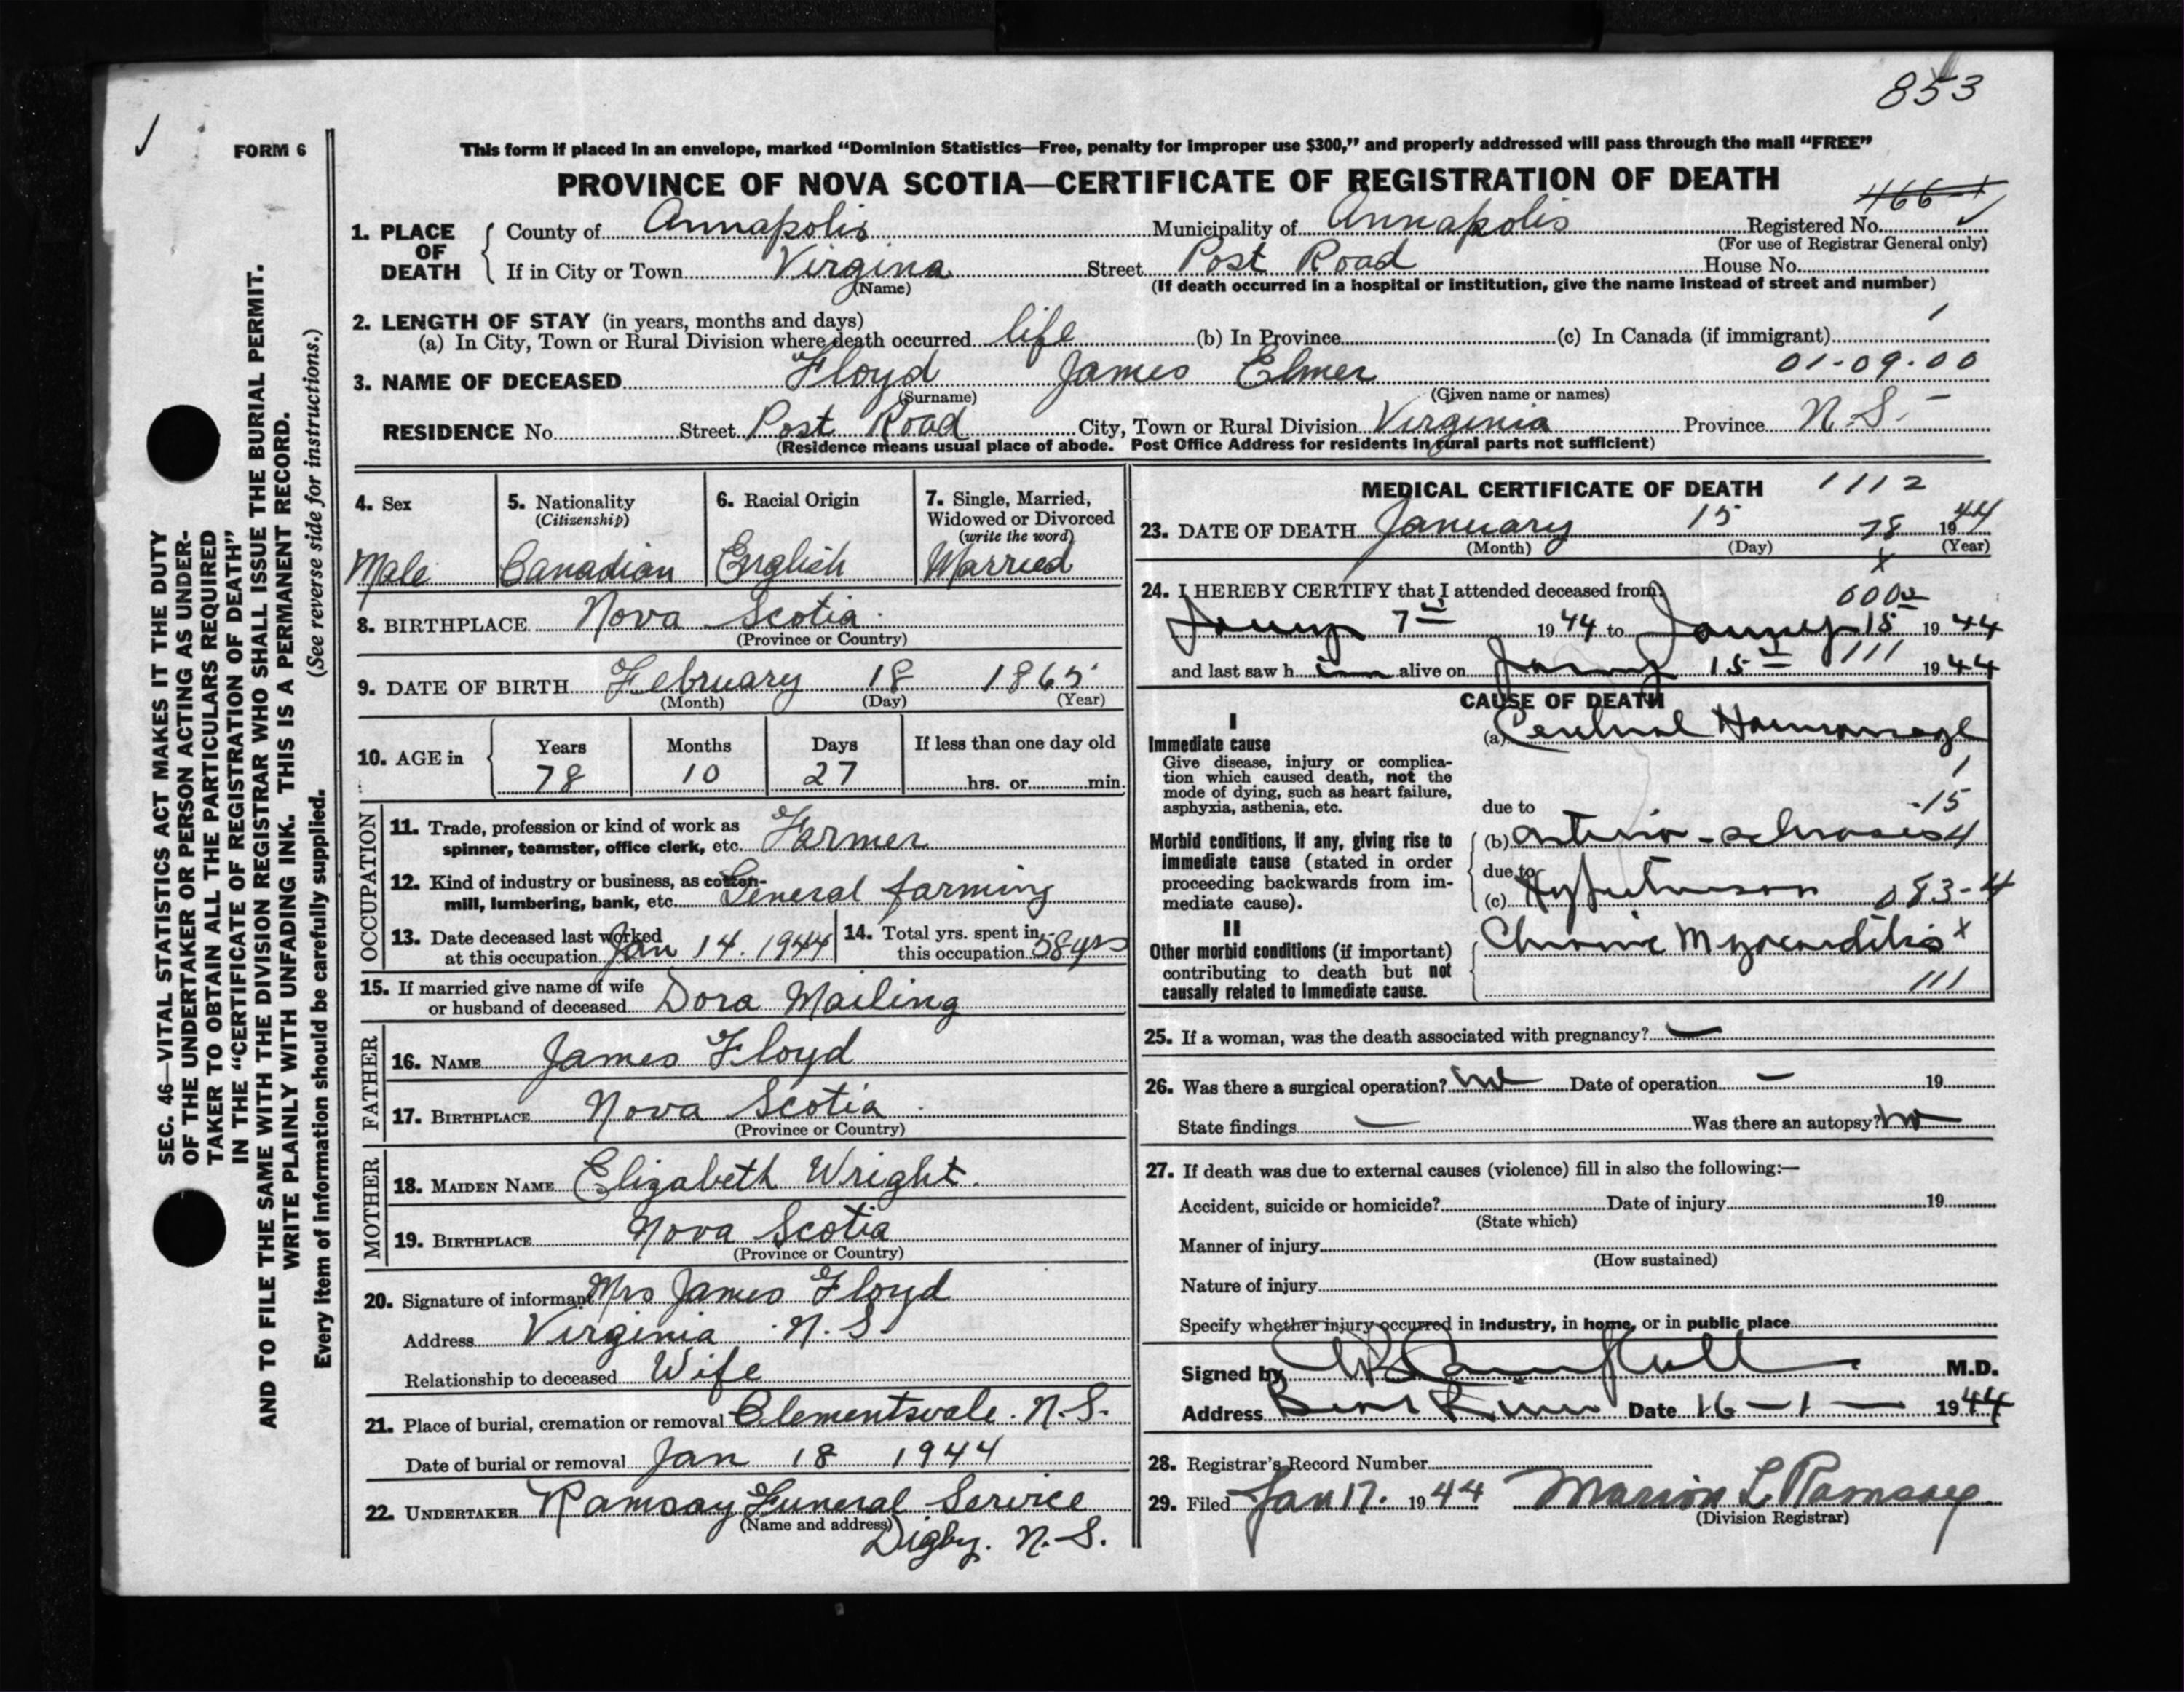 853
✓
FORM 6
This form if placed in an envelope, marked “Dominion Statistics—Free, penalty for improper use $300,” and properly addressed will pass through the mail “FREE”
PROVINCE OF NOVA SCOTIA—CERTIFICATE OF REGISTRATION OF DEATH
1. PLACE OF DEATH County of Annapolis Municipality of Annapolis Registered No. ✓
(For use of Registrar General only)
If in City or Town Virgina Street Post Road House No.
(Name) (If death occurred in a hospital or institution, give the name instead of street and number)
2. LENGTH OF STAY (in years, months and days)
(a) In City, Town or Rural Division where death occurred life (b) In Province (c) In Canada (if immigrant)
3. NAME OF DECEASED Floyd James Elmer 01-09-00
(Surname) (Given name or names)
RESIDENCE No. Street Post Road City, Town or Rural Division Virginia Province N.S.
(Residence means usual place of abode. Post Office Address for residents in rural parts not sufficient)
4. Sex Male
5. Nationality (Citizenship) Canadian
6. Racial Origin English
7. Single, Married, Widowed or Divorced (write the word) Married
8. BIRTHPLACE Nova Scotia
(Province or Country)
9. DATE OF BIRTH February 18 1865
(Month) (Day) (Year)
10. AGE in Years 78 Months 10 Days 27 If less than one day old hrs. or min.
OCCUPATION
11. Trade, profession or kind of work as spinner, teamster, office clerk, etc. Farmer
12. Kind of industry or business, as cotton-mill, lumbering, bank, etc. General farming
13. Date deceased last worked at this occupation Jan 14. 1944
14. Total yrs. spent in this occupation 58 yrs
15. If married give name of wife or husband of deceased Dora Mailing
FATHER
16. NAME James Floyd
17. BIRTHPLACE Nova Scotia
(Province or Country)
MOTHER
18. MAIDEN NAME Elizabeth Wright.
19. BIRTHPLACE Nova Scotia
(Province or Country)
20. Signature of informant Mrs James Floyd
Address Virginia N.S.
Relationship to deceased Wife
21. Place of burial, cremation or removal Clementsvale. N.S.
Date of burial or removal Jan 18 1944
22. UNDERTAKER Ramsay Funeral Service
(Name and address) Digby. N.S.
MEDICAL CERTIFICATE OF DEATH 1112
23. DATE OF DEATH January 15 78 1944
(Month) (Day) (Year)
24. I HEREBY CERTIFY that I attended deceased from:
January 7th 1944 to January 15 1944
and last saw him alive on January 15th 1944
CAUSE OF DEATH
I
Immediate cause
Give disease, injury or complication which caused death, not the mode of dying, such as heart failure, asphyxia, asthenia, etc.
(a) Cerebral Haemorrhage
due to
-15
Morbid conditions, if any, giving rise to immediate cause (stated in order proceeding backwards from immediate cause).
(b) Arterio-sclerosis 4
due to
(c) Hypertension 083-4
II
Other morbid conditions (if important) contributing to death but not causally related to immediate cause.
Chronic Myocarditis x
111
25. If a woman, was the death associated with pregnancy? —
26. Was there a surgical operation? no Date of operation — 19
State findings — Was there an autopsy? no
27. If death was due to external causes (violence) fill in also the following:—
Accident, suicide or homicide? Date of injury 19
(State which)
Manner of injury
(How sustained)
Nature of injury
Specify whether injury occurred in industry, in home, or in public place
Signed by M.D.
Address Bear River Date 16-1- 1944
28. Registrar's Record Number
29. Filed Jan 17. 1944 Marion L Ramsay
(Division Registrar)
SEC. 46—VITAL STATISTICS ACT MAKES IT THE DUTY
OF THE UNDERTAKER OR PERSON ACTING AS UNDER-
TAKER TO OBTAIN ALL THE PARTICULARS REQUIRED
IN THE “CERTIFICATE OF REGISTRATION OF DEATH”
AND TO FILE THE SAME WITH THE DIVISION REGISTRAR WHO SHALL ISSUE THE BURIAL PERMIT.
WRITE PLAINLY WITH UNFADING INK. THIS IS A PERMANENT RECORD.
Every item of information should be carefully supplied. (See reverse side for instructions.)